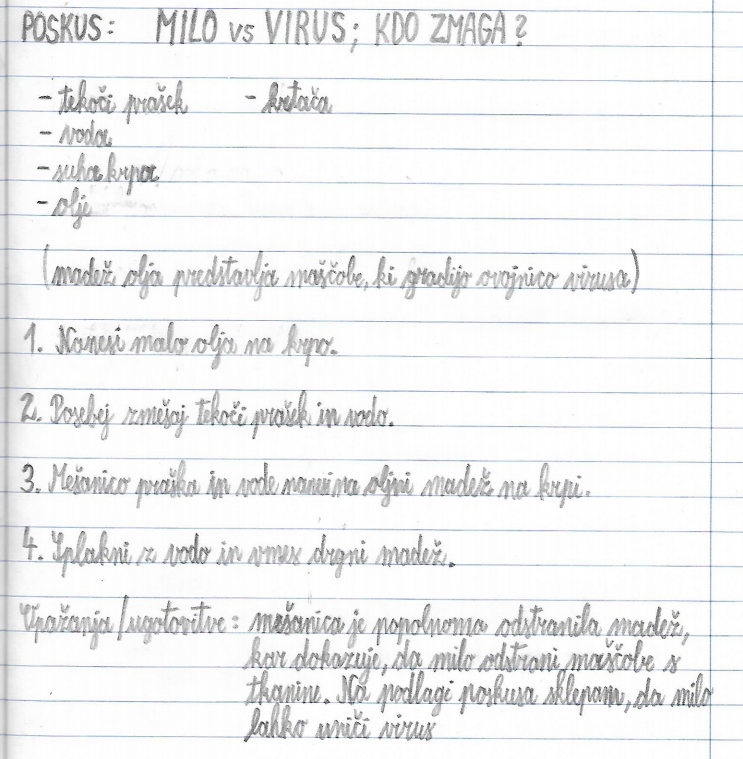 POSKUS: MILO vs VIRUS; KDO ZMAGA?
- tekoči prašek - krtača
- voda
- suha krpa
- olje
(madež olja predstavlja maščobe, ki gradijo ovojnico virusa)
1. Nanesi malo olja na krpo.
2. Posebej zmešaj tekoči prašek in vodo.
3. Mešanico praška in vode nanesi na oljni madež na krpi.
4. Splakni z vodo in vmes drgni madež.
Opažanja/ugotovitve: mešanica je popolnoma odstranila madež,
kar dokazuje, da milo odstrani maščobe s
tkanine. Na podlagi poskusa sklepam, da milo
lahko uniči virus